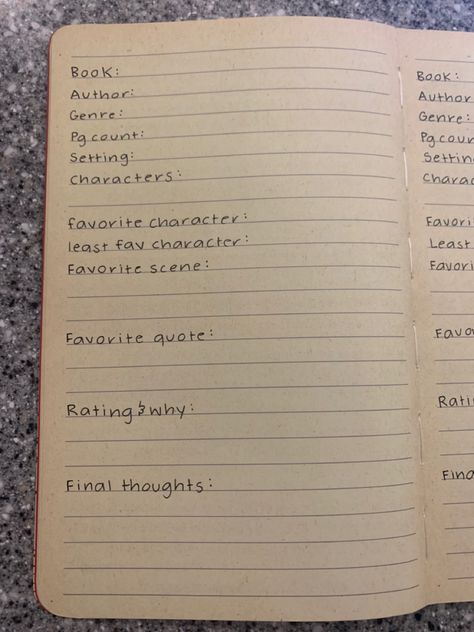 Book:
Author:
Genre:
Pg count:
Setting:
Characters:
favorite character:
least fav character:
Favorite scene:
Favorite quote:
Rating & why:
Final thoughts:
Book:
Author
Genre:
Pg coun
Settin
Charac
Favori
Least
Favori
Favo
Rati
Fina